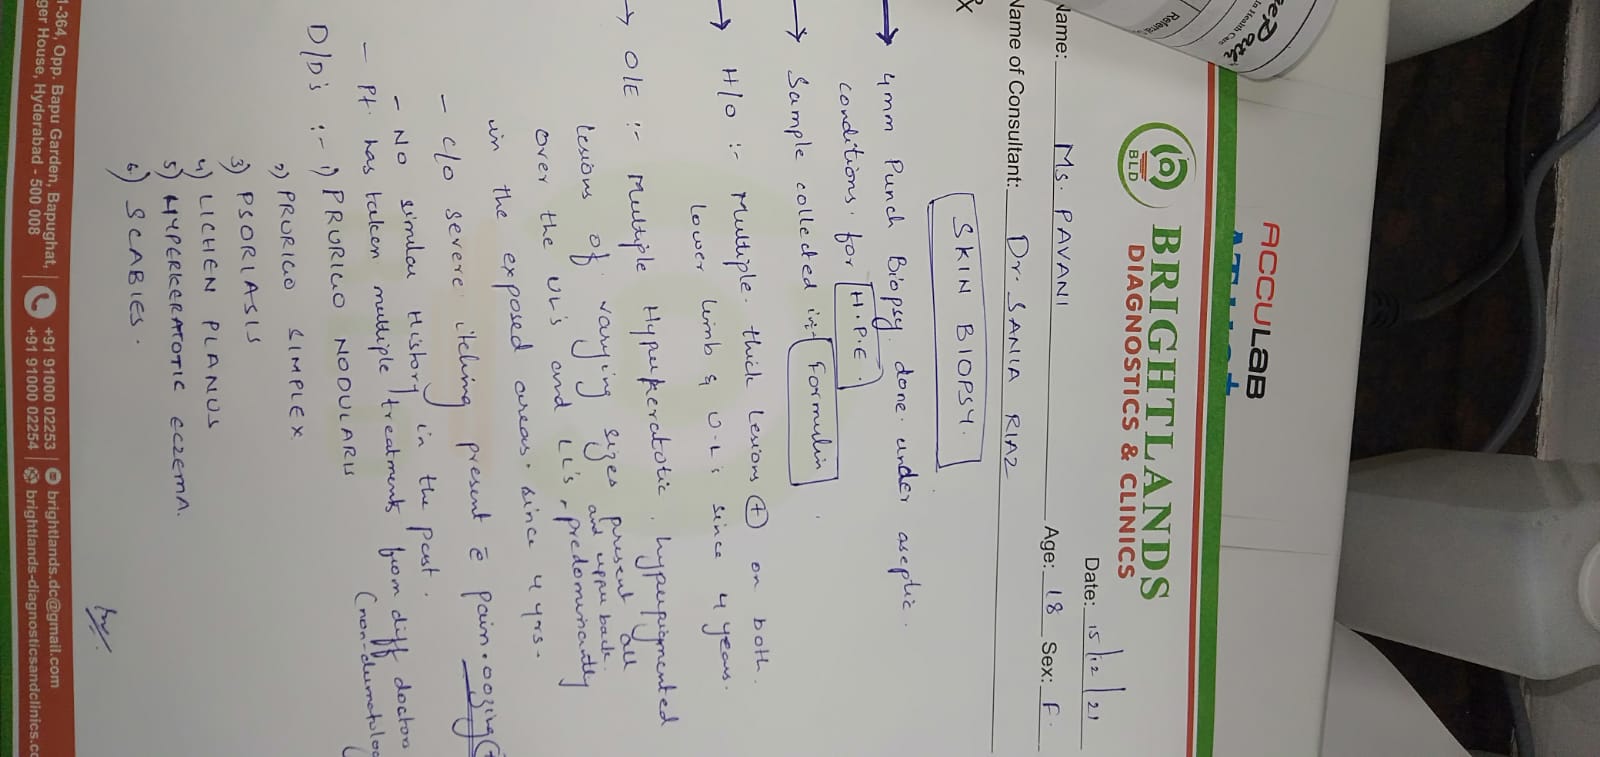 ACCULAB
BLD
BRIGHTLANDS
DIAGNOSTICS & CLINICS
Date: 15/12/21
Name: Ms. PAVANI Age: 18 Sex: F.
Name of Consultant: Dr. SANIA RIAZ
SKIN BIOPSY.
→ 4mm Punch Biopsy. done under aseptic.
conditions. for H.P.E.
→ Sample collected in :- Formulin
→ H/O :- Multiple. thick lesions (+) on both.
lower limb & U.L's since 4 years.
→ O/E :- Multiple Hyperkeratotic, hyperpigmented
lesions of varying sizes present all
and upper back.
over the UL's and LL's, predominantly
in the exposed areas. since 4 yrs.
- c/o severe itching present c̄ pain. oozing (+
- No similar History in the past.
- Pt. has taken multiple treatments from diff doctors
(non-dermatolog
D/D's :- 1) PRURIGO NODULARIS
2) PRURIGO SIMPLEX
3) PSORIASIS
4) LICHEN PLANUS
5) HYPERKERATOTIC ECZEMA.
6) SCABIES.
1-364, Opp. Bapu Garden, Bapughat,
ger House, Hyderabad - 500 008
+91 91000 02253
+91 91000 02254
brightlands.dc@gmail.com
brightlands-diagnosticsandclinics.co
ePath
In Health Care